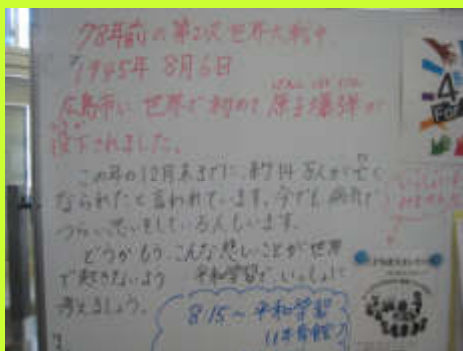 78年前の第2次世界大戦中
1945年 8月6日
広島市に 世界で初めて 原子爆弾が
投下されました。
この年の12月末までに、約14万人が亡く
なられたと言われています。今でも病気で
つらい思いをしている人もいます。
どうかもう、こんな悲しいことが世界
で起きないよう 平和学習で、いっしょに
考えましょう。
8:15～平和学習